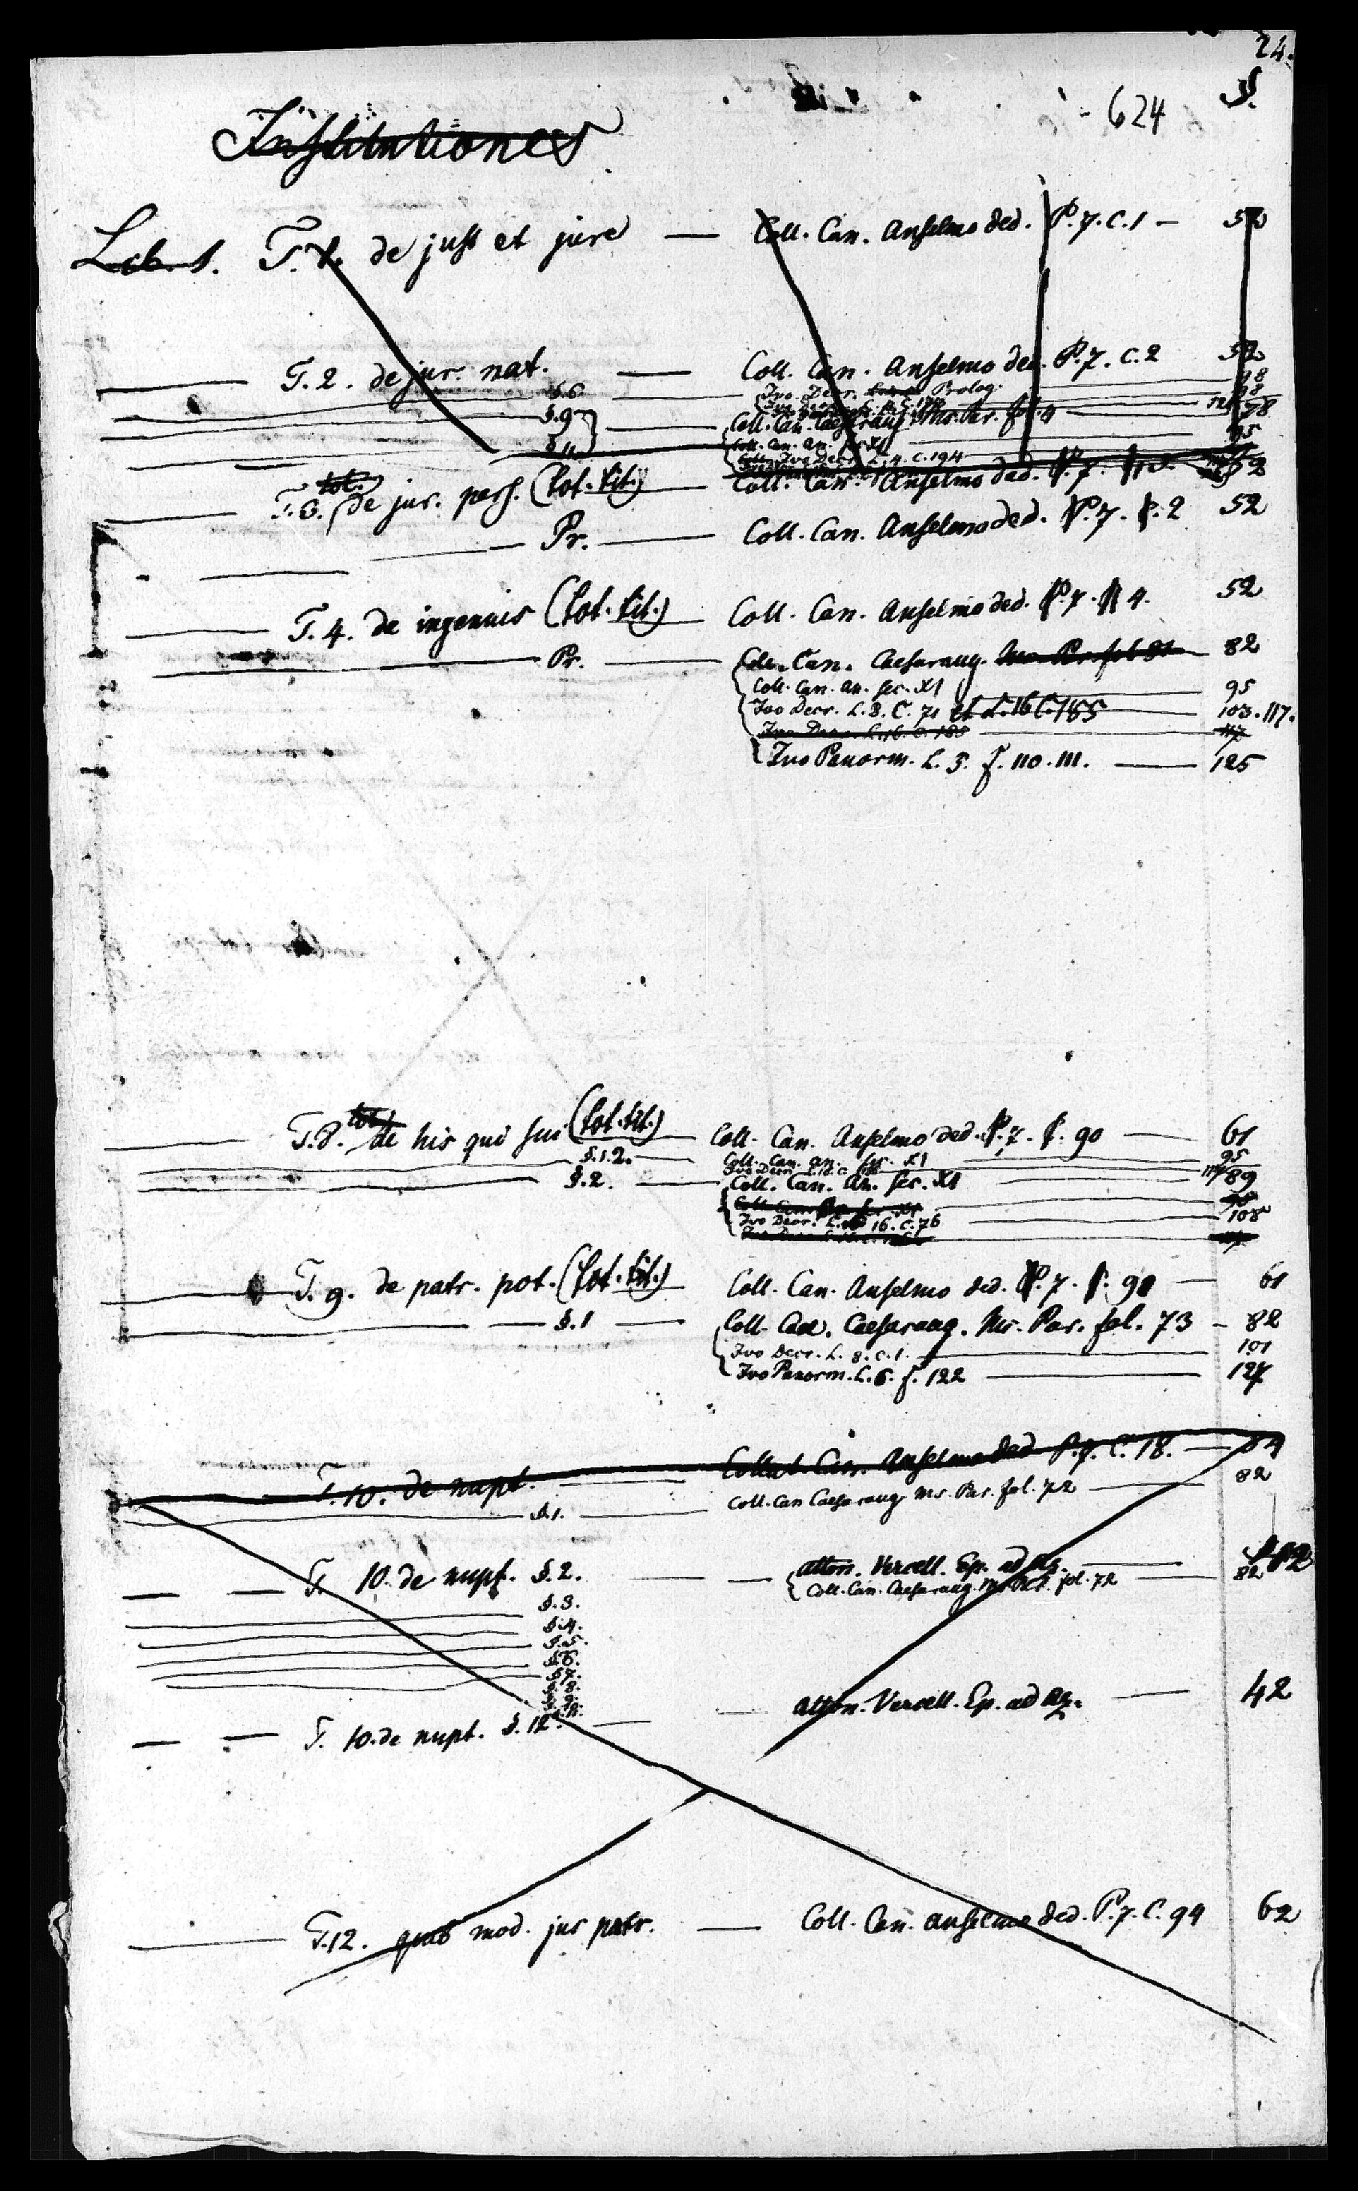 24.
624 S.
Institutiones
Lib. 1. T. 1. de just et jure — Coll. Can. Anselmo ded. P. 7. C. 1 — 52
T. 2. de jur. nat. — Coll. Can. Anselmo ded. P. 7. C. 2 52
§. 6 Ivo Decr. Prolog. 98
§. 9 Coll. Can. Caesaraug. Ms. Par. fol. 4 78
§ 11 Coll. Can. an. sec. XI 95
Ivo Decr. L. 4. C. 194
T. 3. tot. de jur. pers. (tot. tit.) Coll. Can. Anselmo ded. P. 7. 52
Pr. — Coll. Can. Anselmo ded. P. 7. C. 2 52
T. 4. de ingenuis (tot. tit.) Coll. Can. Anselmo ded. P. 7. 4. 52
Pr. — Coll. Can. Caesaraug. Ms. Par. fol 82
Coll. Can. an. sec. XI 95
Ivo Decr. L. 8. C. 71 et L. 16 C. 185 103. 117.
Ivo Decr. L. 16. C. 185 117
Ivo Panorm. L. 5. f. 110. 111. — 125
T. 8. tot. de his qui sui (tot. tit.) Coll. Can. Anselmo ded. P. 7. C. 90 — 61
§. 1. 2. — Coll. Can. an. sec. XI 95
§. 2. — Coll. Can. An. sec. XI 89
Ivo Decr. L. 16. C. 76 108
T. 9. de patr. pot. (tot. tit.) Coll. Can. Anselmo ded. P. 7. C. 90 — 61
§. 1 — Coll. Can. Caesaraug. Ms. Par. fol. 73 — 82
Ivo Decr. L. 8. C. 1. — 101
Ivo Panorm. L. 6. f. 122 — 127
T. 10. de nupt. Collect. Can. Anselmo ded P. 7. C. 18. — 54
§. 1. — Coll. Can Caesaraug Ms. Par. fol. 72 — 82
T. 10. de nupt. §. 2. — Atton. Vercell. Ep. ad Az. —
Coll. Can. Caesaraug. Ms. Par. fol. 72 — 82
§. 3.
§. 4.
§. 5.
§. 6.
§ 7.
§. 8.
§. 9.
T. 10. de nupt. §. 12. — Atton. Vercell. Ep. ad Az. — 42
T. 12. quib mod. jus patr. — Coll. Can. Anselmo ded. P. 7. C. 94 62